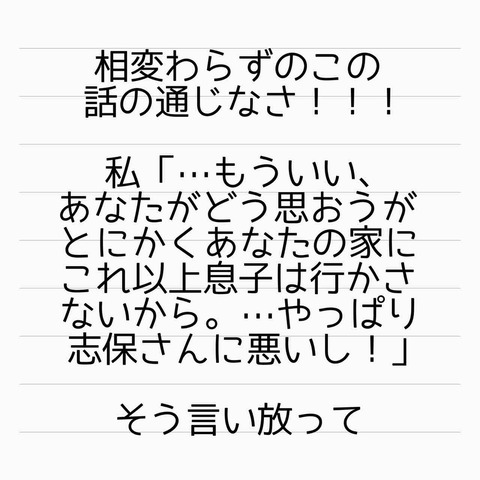 相変わらずのこの
話の通じなさ！！！
私「…もういい、
あなたがどう思おうが
とにかくあなたの家に
これ以上息子は行かさ
ないから。…やっぱり
志保さんに悪いし！」
そう言い放って